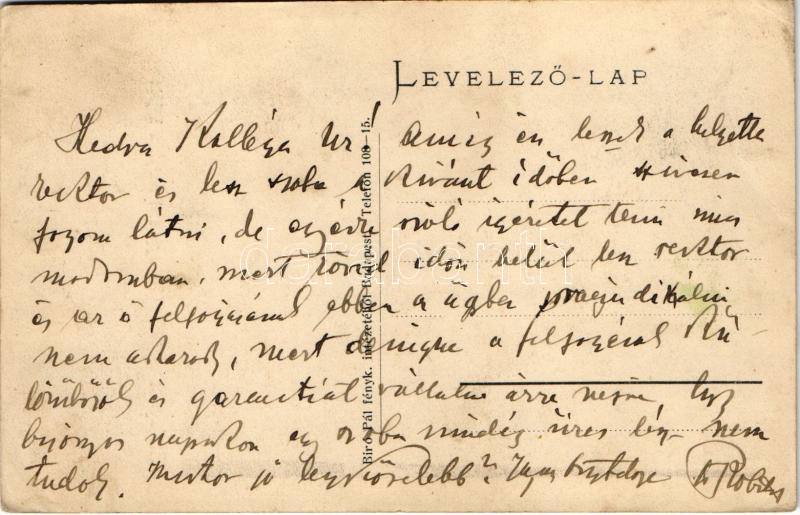 LEVELEZŐ-LAP
Kedves Kolléga Úr! Amíg én leszek a helyette
rektor és lesz szoba a kívánt időben szívesen
fogom látni, de egyévre szóló ígéretet tenni nincs
módomban, mert rövid időn belül lesz rektor
és az ő felfogásának ebben az ügyben praejudikálni
nem akarok, mert a felfogások kü-
lönbözők és garantiát vállalni arra nézve, hogy
bizonyos napokon egy szoba mindég üres légy nem
tudok. Mikor jő legközelebb?
Biró Pál fényk. intézetéből Budapest. Telefon 108—15.
darabanth